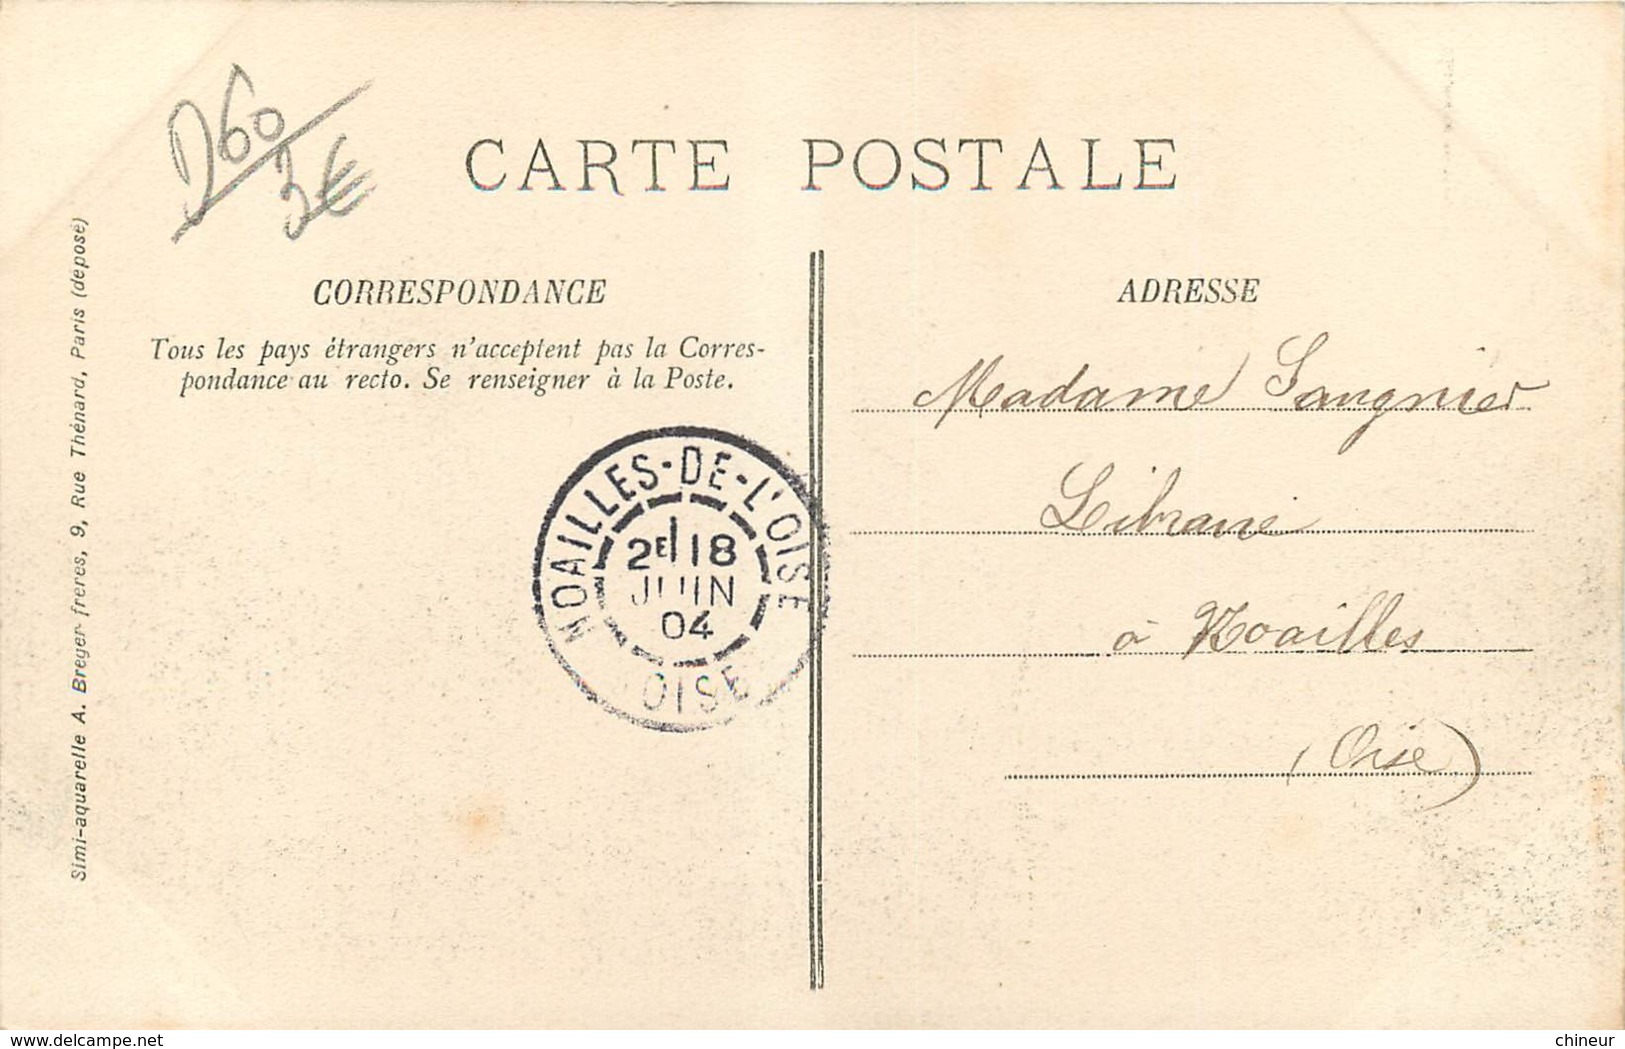 D60
3€
CARTE POSTALE
CORRESPONDANCE
Tous les pays étrangers n'acceptent pas la Corres-
pondance au recto. Se renseigner à la Poste.
Simi-aquarelle A. Breger frères, 9, Rue Thénard, Paris (déposé)
NOAILLES-DE-L'OISE
2E 18
JUIN
04
OISE
ADRESSE
Madame Sangnier
Libraire
à Noailles
(Oise)
delcampe.net
chineur